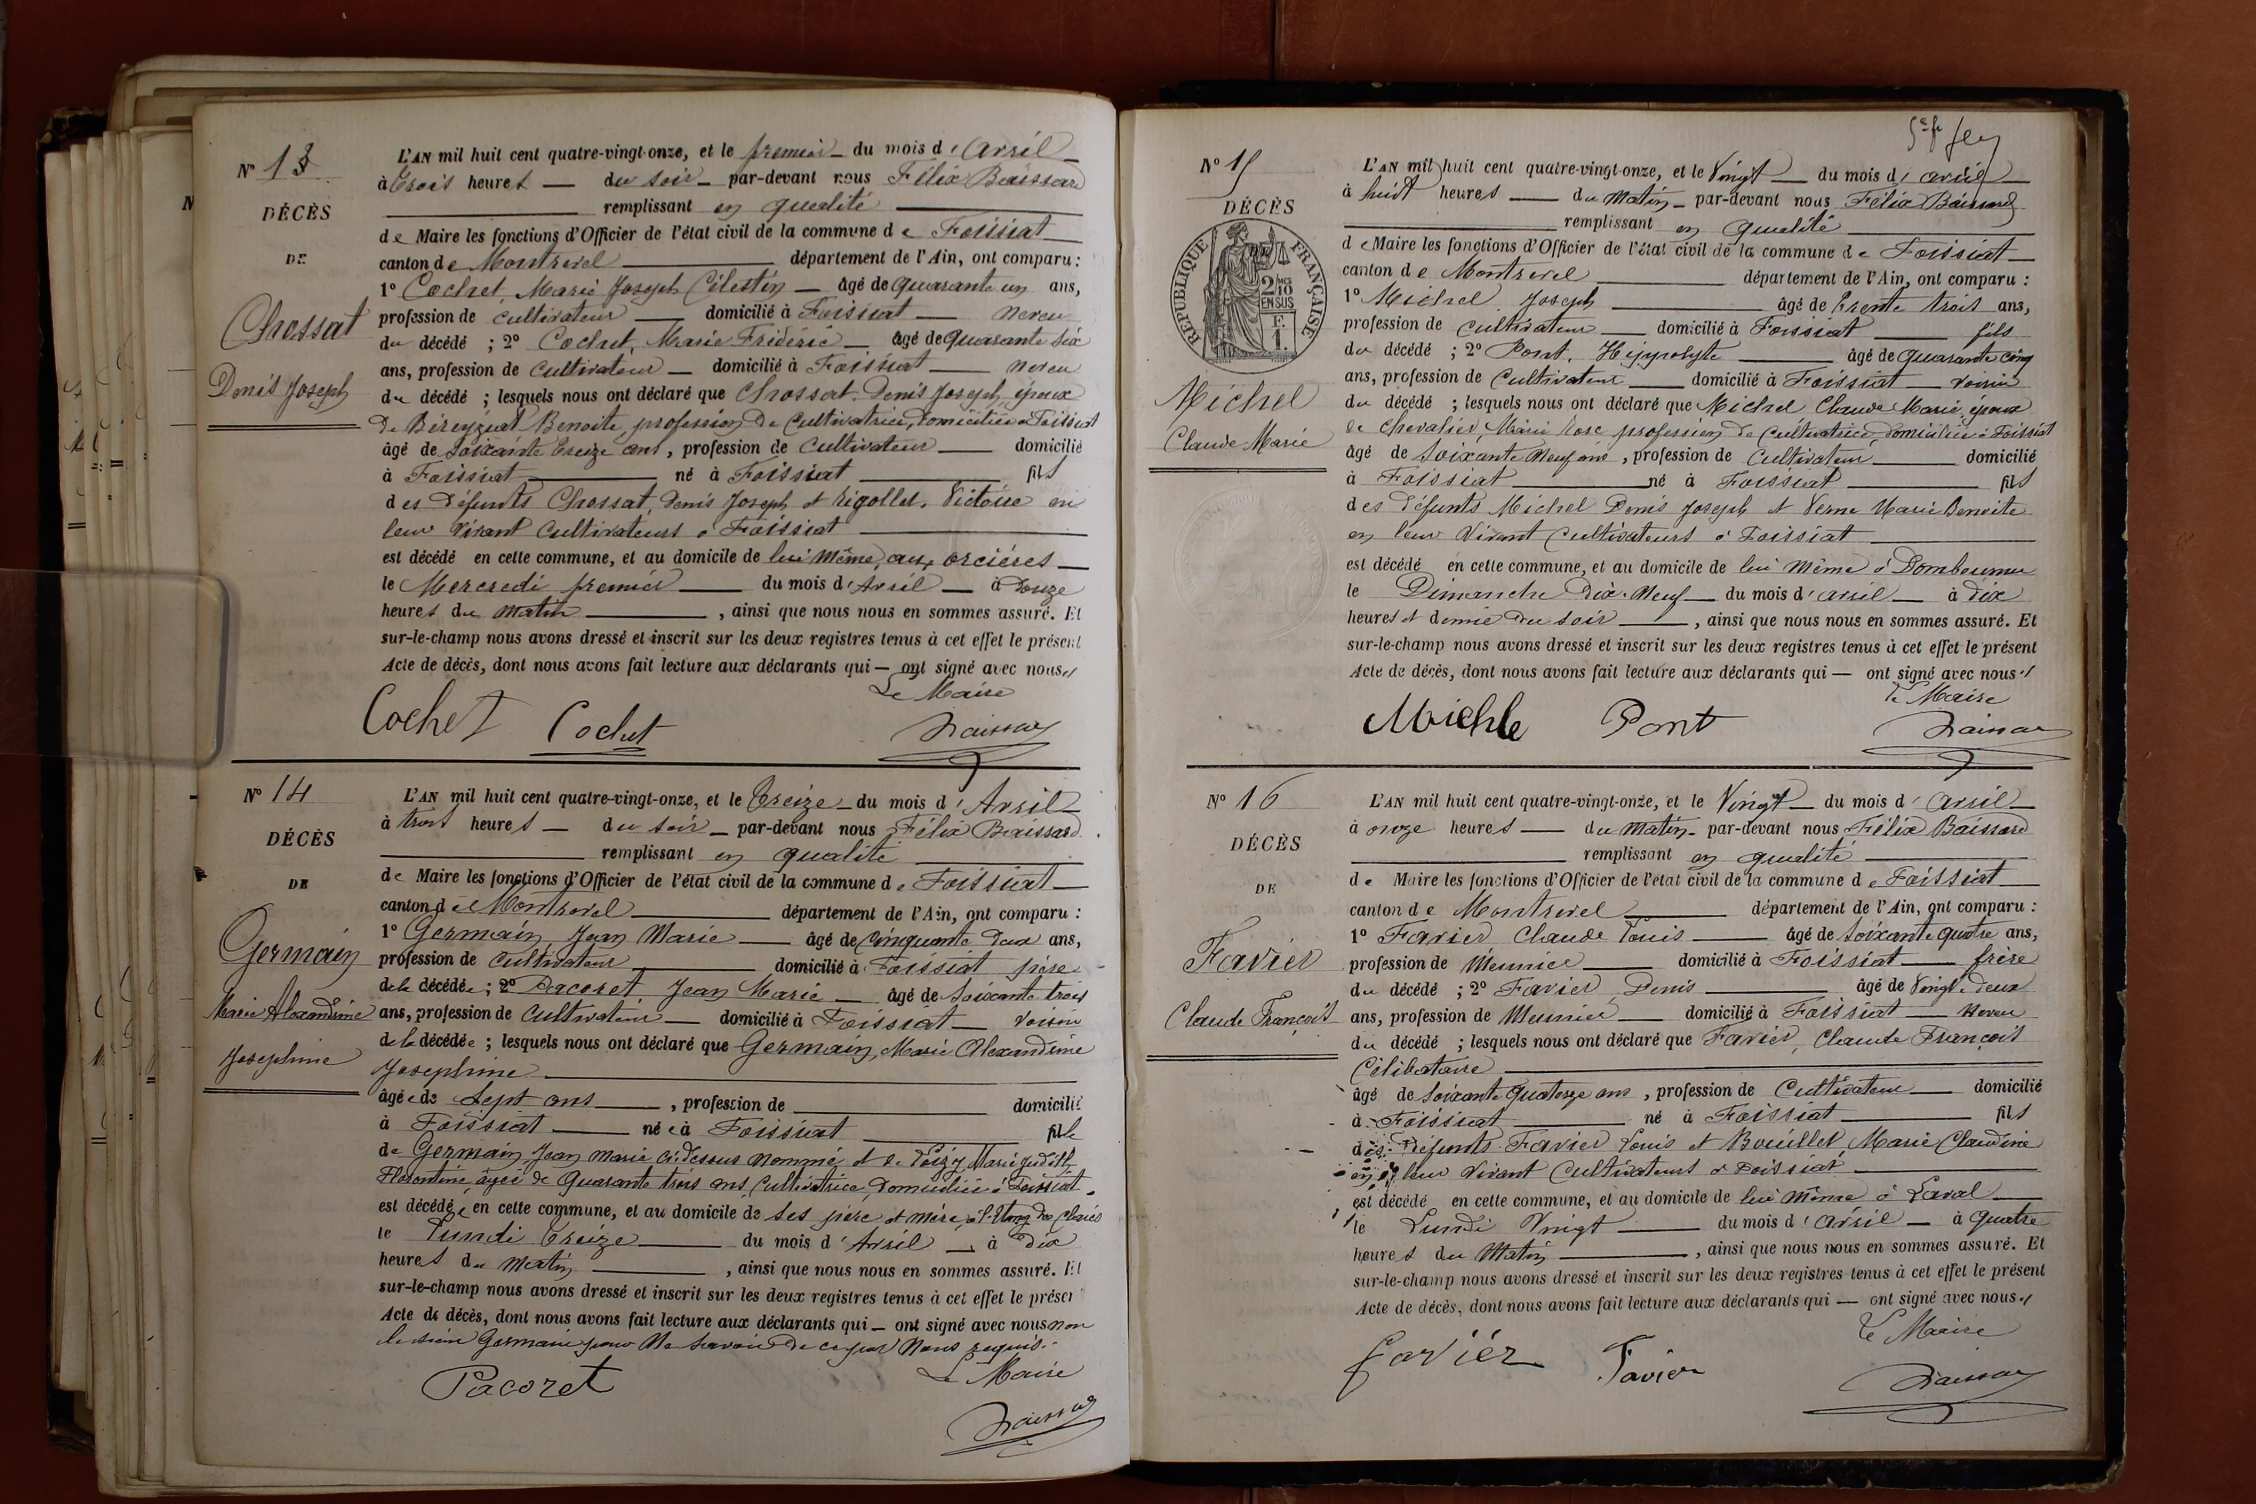 N° 13
DÉCÈS
DE
Chossat
Denis Joseph
L'AN mil huit cent quatre-vingt-onze, et le premier du mois d'Avril
à trois heures du soir par-devant nous Félix Baissard
remplissant en qualité
de Maire les fonctions d'Officier de l'état civil de la commune de Foissiat
canton de Montrevel département de l'Ain, ont comparu :
1° Cochet, Marie Joseph Célestin âgé de quarante un ans,
profession de cultivateur domicilié à Foissiat neveu
du décédé ; 2° Cochet, Marie Frédéric âgé de quarante six
ans, profession de cultivateur domicilié à Foissiat neveu
du décédé ; lesquels nous ont déclaré que Chossat, Denis Joseph, époux
de Béreyziat Benoite, profession de Cultivatrice, domiciliée à Foissiat
âgé de soixante treize ans, profession de cultivateur domicilié
à Foissiat né à Foissiat fils
des défunts Chossat, Denis Joseph et Rigollet, Victoire en
leur vivant cultivateurs à Foissiat
est décédé en cette commune, et au domicile de lui même, aux orcières
le Mercredi premier du mois d'Avril à Douze
heures du matin, ainsi que nous nous en sommes assuré. Et
sur-le-champ nous avons dressé et inscrit sur les deux registres tenus à cet effet le présent
Acte de décès, dont nous avons fait lecture aux déclarants qui ont signé avec nous
Le Maire
Cochet Cochet Baissard
N° 14
DÉCÈS
DE
Germain
Marie Alexandrine
Joséphine
L'AN mil huit cent quatre-vingt-onze, et le treize du mois d'Avril
à trois heures du soir par-devant nous Félix Baissard
remplissant en qualité
de Maire les fonctions d'Officier de l'état civil de la commune de Foissiat
canton de Montrevel département de l'Ain, ont comparu :
1° Germain Jean Marie âgé de cinquante deux ans,
profession de cultivateur domicilié à Foissiat père
de la décédée ; 2° Pacoret Jean Marie âgé de soixante trois
ans, profession de cultivateur domicilié à Foissiat voisin
de la décédée ; lesquels nous ont déclaré que Germain, Marie Alexandrine
Joséphine
âgée de sept ans, profession de domicilié
à Foissiat née à Foissiat fille
de Germain Jean Marie ci-dessus nommé et de Marie Judith
Florentine, âgée de quarante trois ans, Cultivatrice, domiciliée à Foissiat
est décédée en cette commune, et au domicile de ses père et mère, à l'Etang des
le Lundi treize du mois d'Avril à dix
heures du matin, ainsi que nous nous en sommes assuré. Et
sur-le-champ nous avons dressé et inscrit sur les deux registres tenus à cet effet le présen
Acte de décès, dont nous avons fait lecture aux déclarants qui ont signé avec nous non
le sieur Germain pour ne savoir de ce par Nous requis.
Le Maire
Pacoret
Baissard
N° 15
DÉCÈS
RÉPUBLIQUE FRANÇAISE
2/10
EN SUS
F.
1.
Michel
Claude Marie
L'AN mil huit cent quatre-vingt-onze, et le Vingt du mois d'avril
à huit heures du matin par-devant nous Félix Baissard
remplissant en qualité
de Maire les fonctions d'Officier de l'état civil de la commune de Foissiat
canton de Montrevel département de l'Ain, ont comparu :
1° Michel Joseph âgé de trente trois ans,
profession de cultivateur domicilié à Foissiat fils
du décédé ; 2° Pont, Hippolyte âgé de quarante cinq
ans, profession de cultivateur domicilié à Foissiat voisin
du décédé ; lesquels nous ont déclaré que Michel Claude Marie, époux
de Chevalier, Marie Rose profession de Cultivatrice domiciliée à Foissiat
âgé de soixante neuf ans, profession de cultivateur domicilié
à Foissiat né à Foissiat fils
des défunts Michel Denis Joseph et Verne Marie Benoite
en leur vivant cultivateurs à Foissiat
est décédé en cette commune, et au domicile de lui même à
le Dimanche Dix-Neuf du mois d'avril à dix
heures et demie du soir, ainsi que nous nous en sommes assuré. Et
sur-le-champ nous avons dressé et inscrit sur les deux registres tenus à cet effet le présent
Acte de décès, dont nous avons fait lecture aux déclarants qui ont signé avec nous
Le Maire
Michle Pont Baissard
N° 16
DÉCÈS
DE
Favier
Claude François
L'AN mil huit cent quatre-vingt-onze, et le Vingt du mois d'avril
à onze heures du matin par-devant nous Félix Baissard
remplissant en qualité
de Maire les fonctions d'Officier de l'état civil de la commune de Foissiat
canton de Montrevel département de l'Ain, ont comparu :
1° Favier Claude Louis âgé de soixante quatre ans,
profession de Meunier domicilié à Foissiat frère
du décédé ; 2° Favier, Denis âgé de vingt-deux
ans, profession de Meunier domicilié à Foissiat neveu
du décédé ; lesquels nous ont déclaré que Favier, Claude François
Célibataire
âgé de soixante quatorze ans, profession de Cultivateur domicilié
à Foissiat né à Foissiat fils
des défunts Favier Louis et Bouillet, Marie Claudine
en leur vivant cultivateurs à Foissiat
est décédé en cette commune, et au domicile de lui même à Laval
le Lundi Vingt du mois d'avril à quatre
heures du matin, ainsi que nous nous en sommes assuré. Et
sur-le-champ nous avons dressé et inscrit sur les deux registres tenus à cet effet le présent
Acte de décès, dont nous avons fait lecture aux déclarants qui ont signé avec nous
Le Maire
Favier Favier Baissard